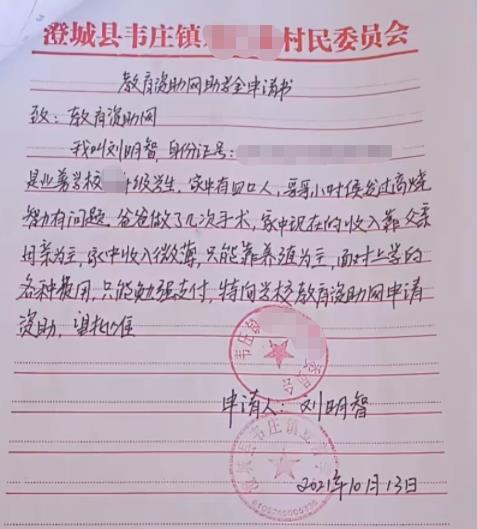 澄城县韦庄镇 村民委员会
教育资助网助学金申请书
致：教育资助网
我叫刘明智，身份证号：
是业善学校 级学生，家中有四口人，哥哥小时候发过高烧
智力有问题，爸爸做了几次手术，家中现在的收入靠父亲
母亲为主，家中收入微薄，只能靠养殖为主，面对上学的
各种费用，只能勉强支付，特向学校教育资助网申请
资助，望批准
韦庄镇 委员会
申请人：刘明智
澄城县韦庄镇业善学校
2021年10月13日